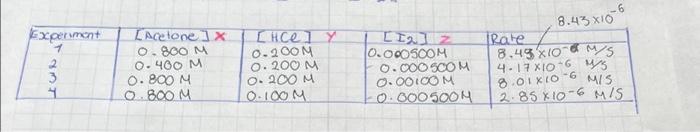 8.43×10⁻⁶
Experiment [Acetone] X [HCl] Y [I₂] Z Rate
1 0.800M 0.200M 0.000500M 8.43×10⁻⁶ M/S
2 0.400 M 0.200 M 0.000500M 4.17×10⁻⁶ M/S
3 0.800M 0.200M 0.00100M 8.01×10⁻⁶ M/S
4 0.800M 0.100M 0.000500M 2.85×10⁻⁶ M/S